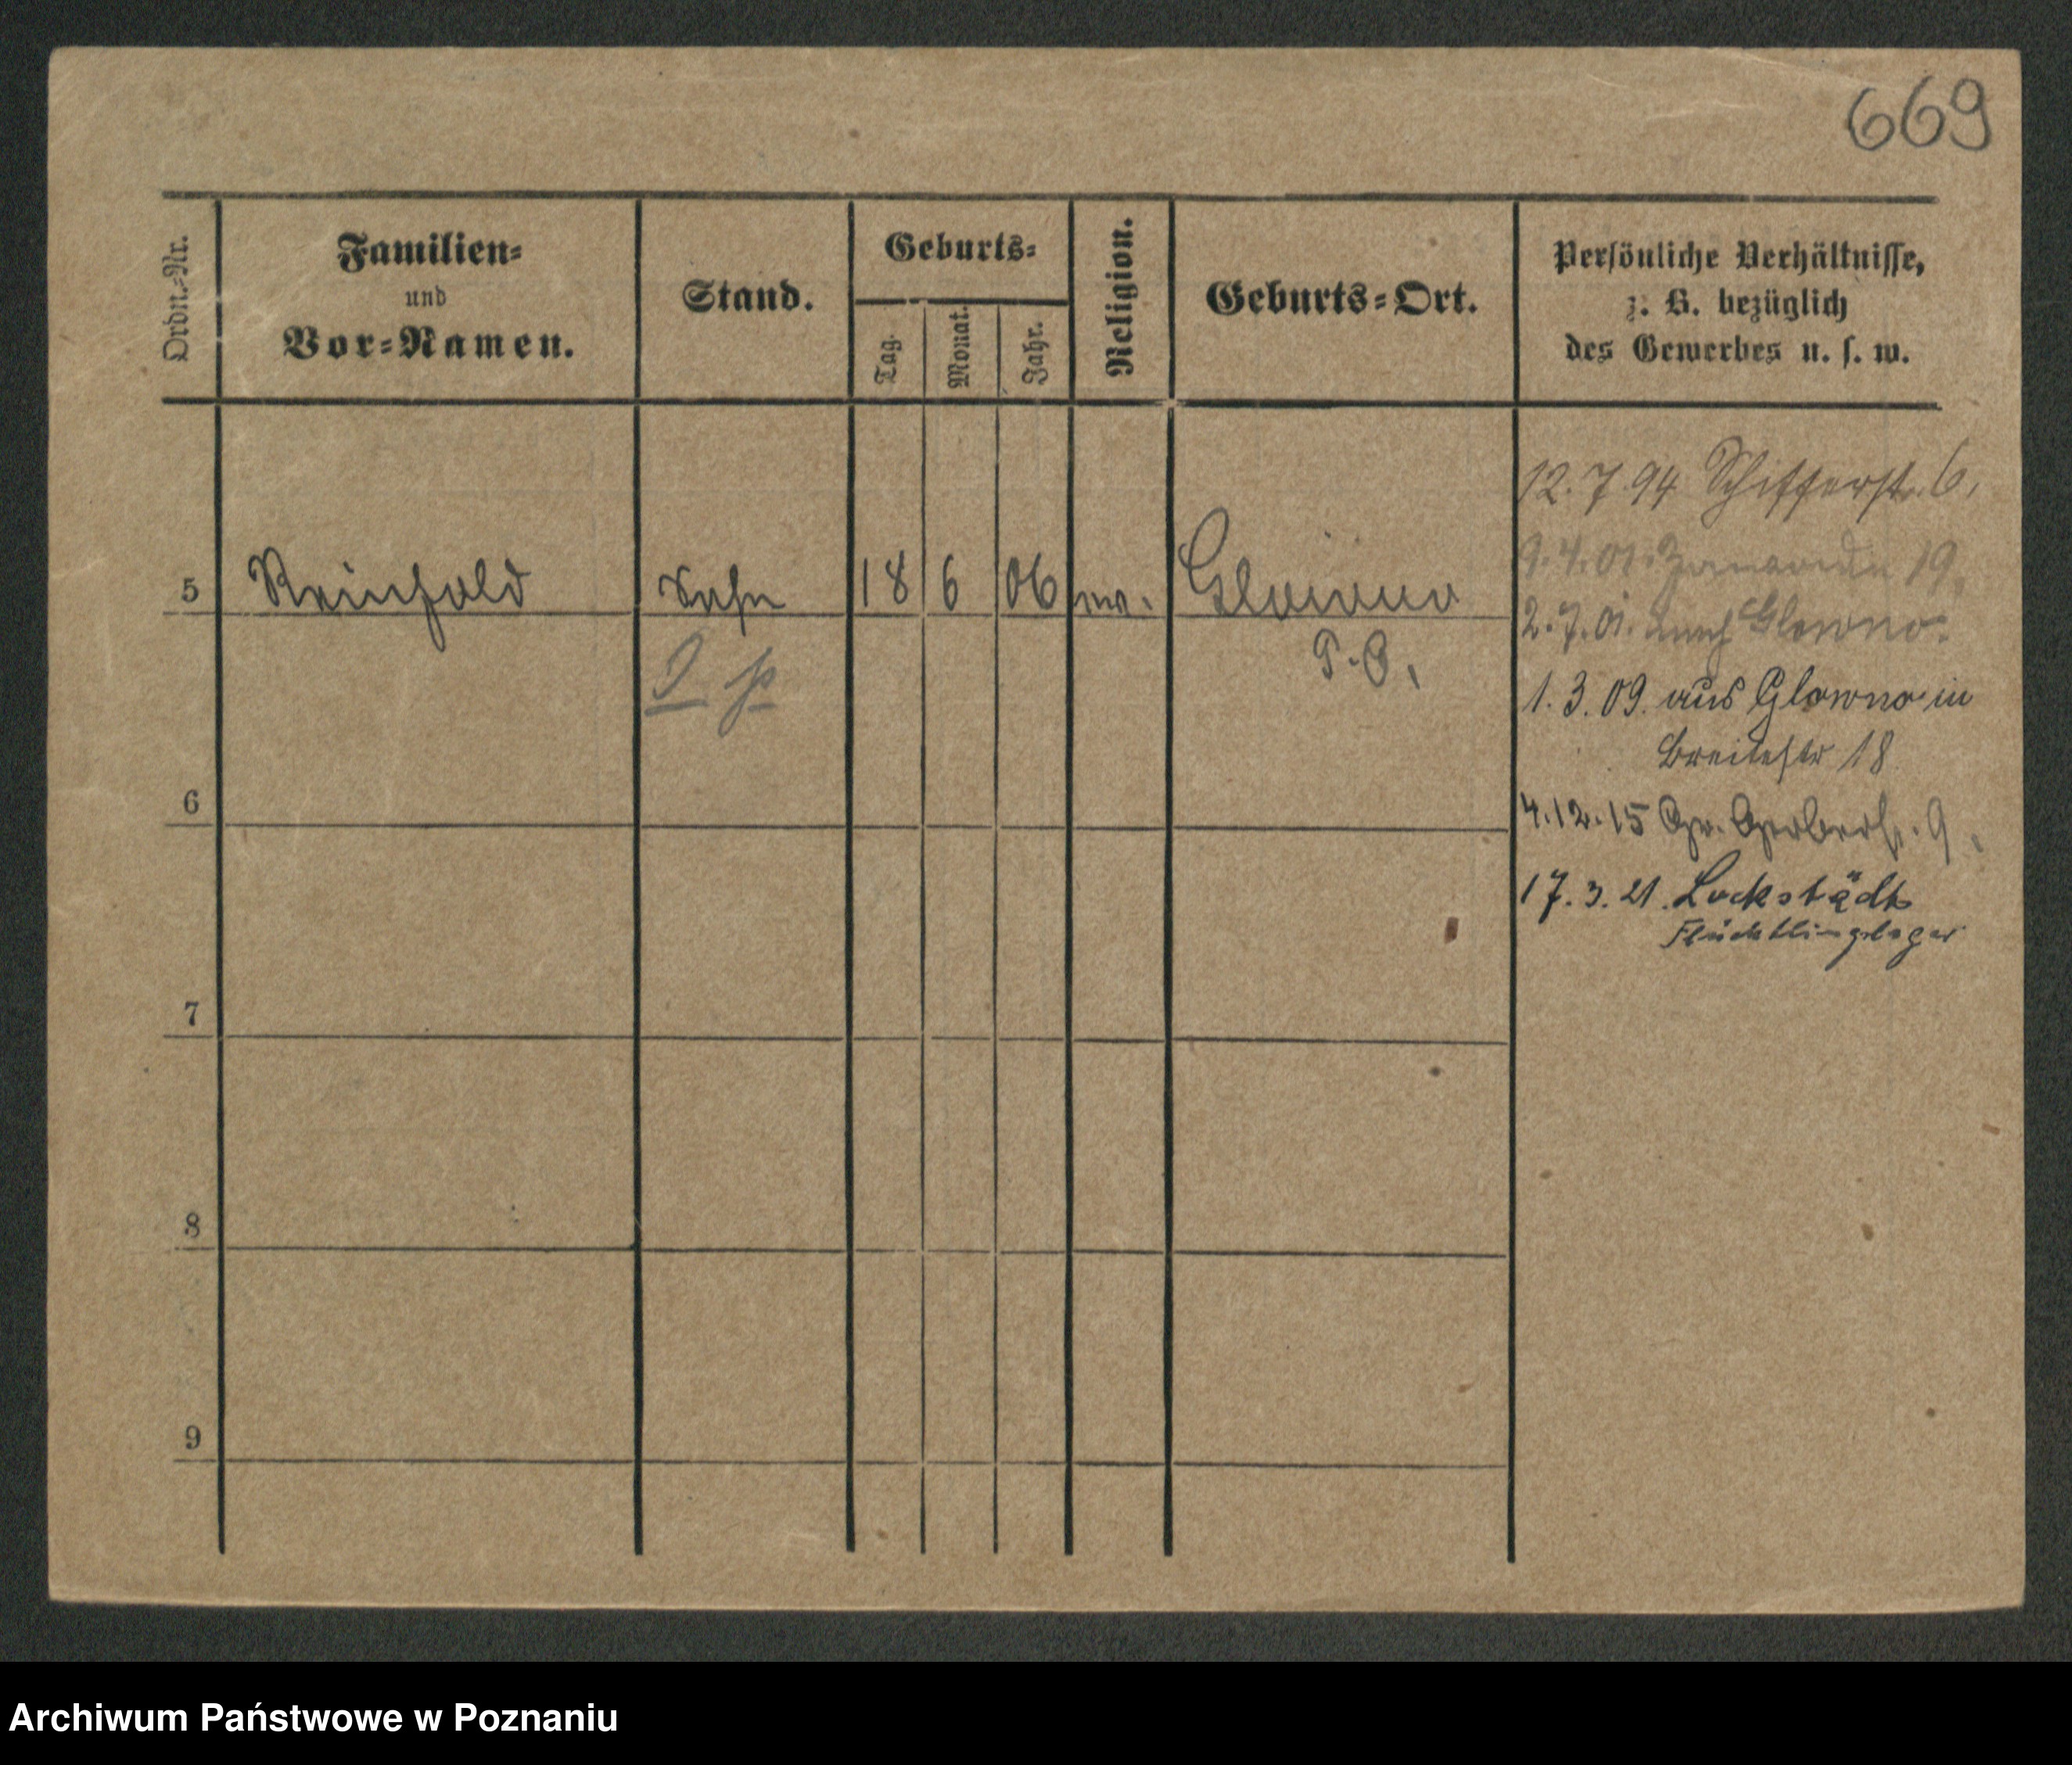 669
Ordn.-Nr.
Familien-
und
Vor-Namen.
Stand.
Geburts-
Tag.
Monat.
Jahr.
Religion.
Geburts-Ort.
Persönliche Verhältnisse,
z. B. bezüglich
des Gewerbes u. s. w.
12.7.94 Schifferstr. 6,
9.4.01. 19.
5 Reinhold Sohn 18 6 06 Glowno
2.7.01. nach Glowno.
P. O.
1.3.09. aus Glowno in
Breitestr 18
6
4.12.15 Gr. Gerberstr. 9.
17.3.21. Lockstädt
Flüchtlingslager
7
8
9
Archiwum Państwowe w Poznaniu